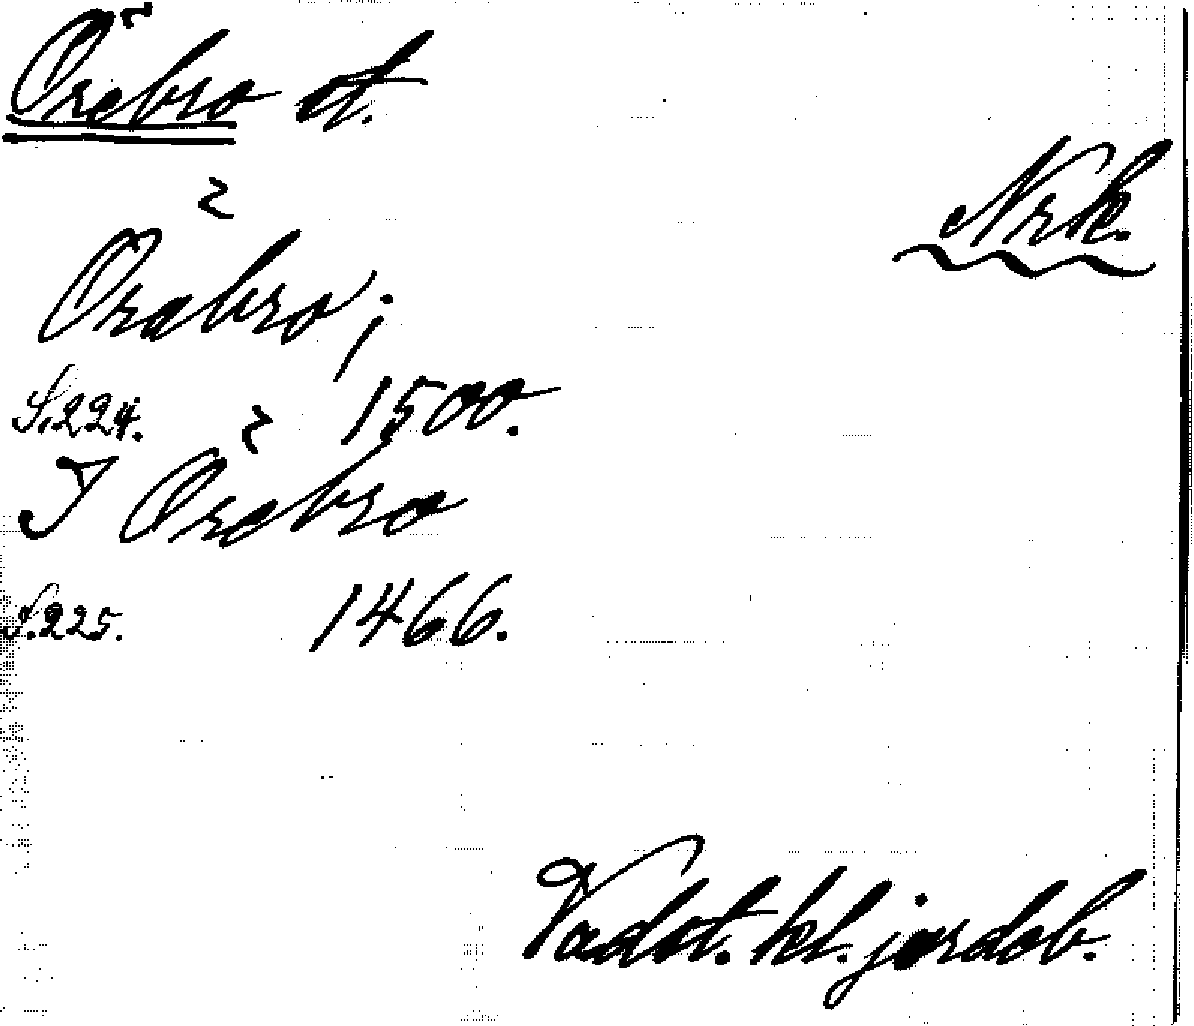 Örebro st.
Nrk.
Örabro;
S. 224. 1500.
I Örebro
S. 225. 1466.
Vadst. kl. jordeb.